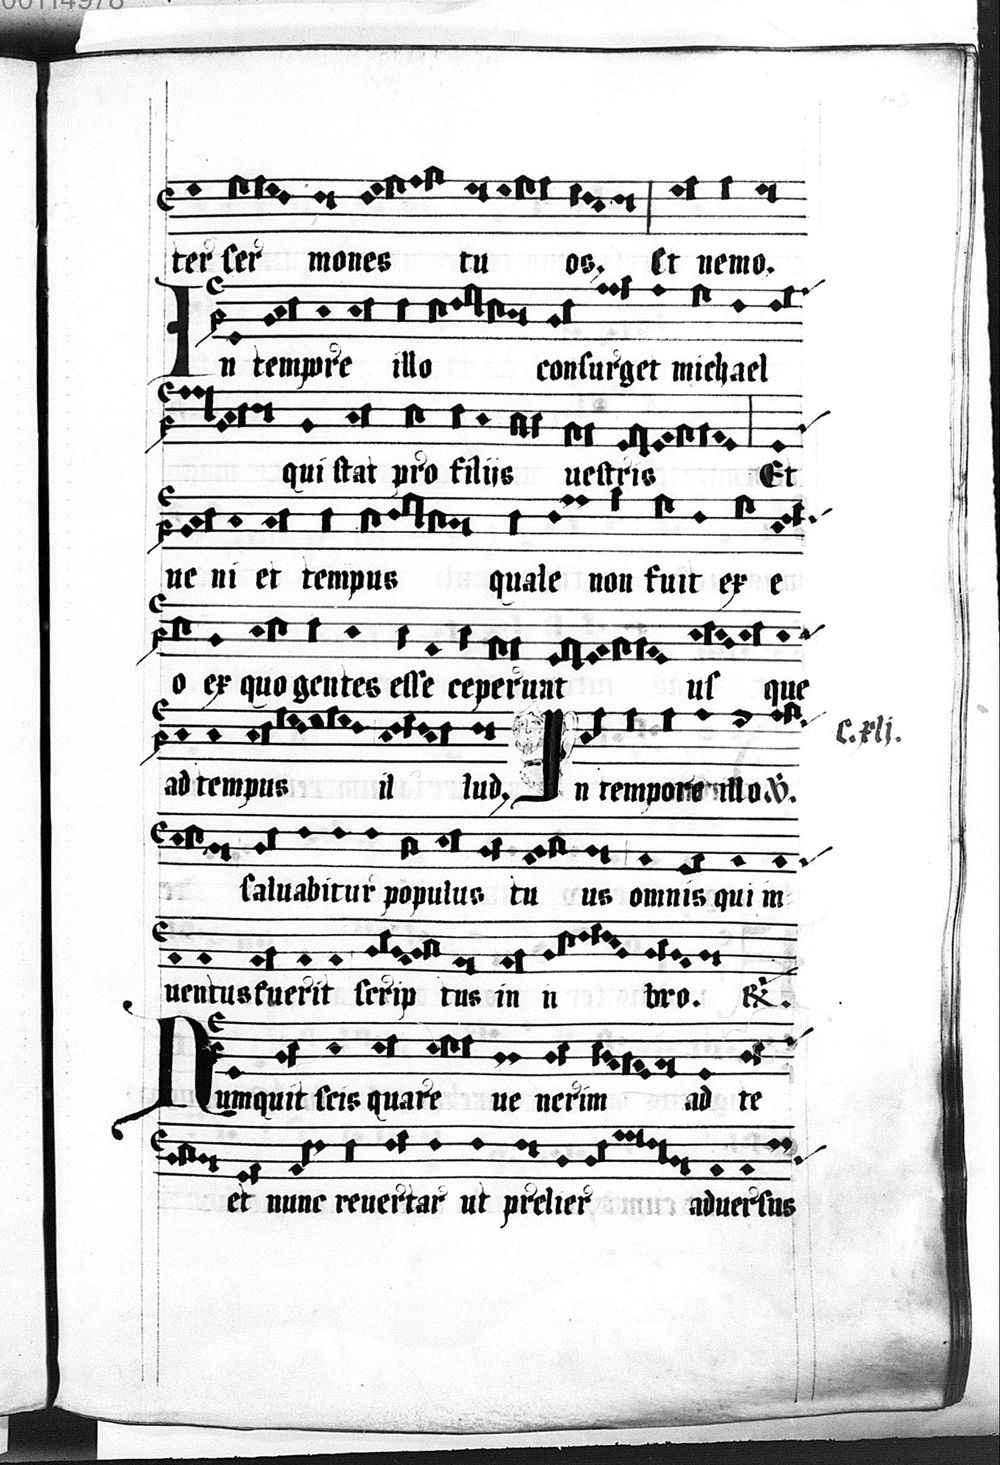 00114978
ter ser mones tu os. Et nemo.
In tempore illo consurget michael
qui stat pro filijs uestris Et
ue ni et tempus quale non fuit ex e
o ex quo gentes esse ceperunt us que
ad tempus il lud. In tempore illo. V.
C. xlj.
saluabitur populus tu us omnis qui in
uentus fuerit scrip tus in li bro. R.
Numquit scis quare ue nerim ad te
et nunc reuertar ut prelier aduersus